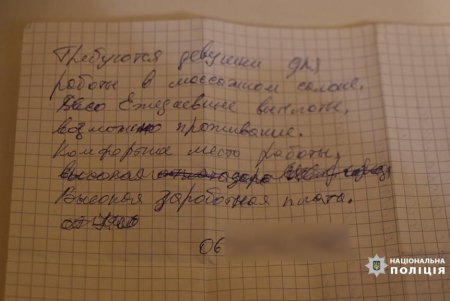 Требуются девушки для
работы в массажном салоне.
Ежедневние выплоты,
возможно проживание.
Комфортное место работы,
высокая
Высокая заработная плата.
06
НАЦІОНАЛЬНА
ПОЛІЦІЯ